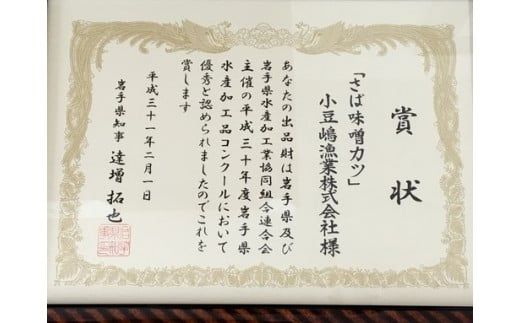 賞状
「さば味噌カツ」
小豆嶋漁業株式会社様
あなたの出品財は岩手県及び
岩手県水産加工業協同組合連合会
主催の平成三十年度岩手県
水産加工品コンクールにおいて
優秀と認められましたのでこれを
賞します
平成三十一年二月一日
岩手県知事 達増拓也